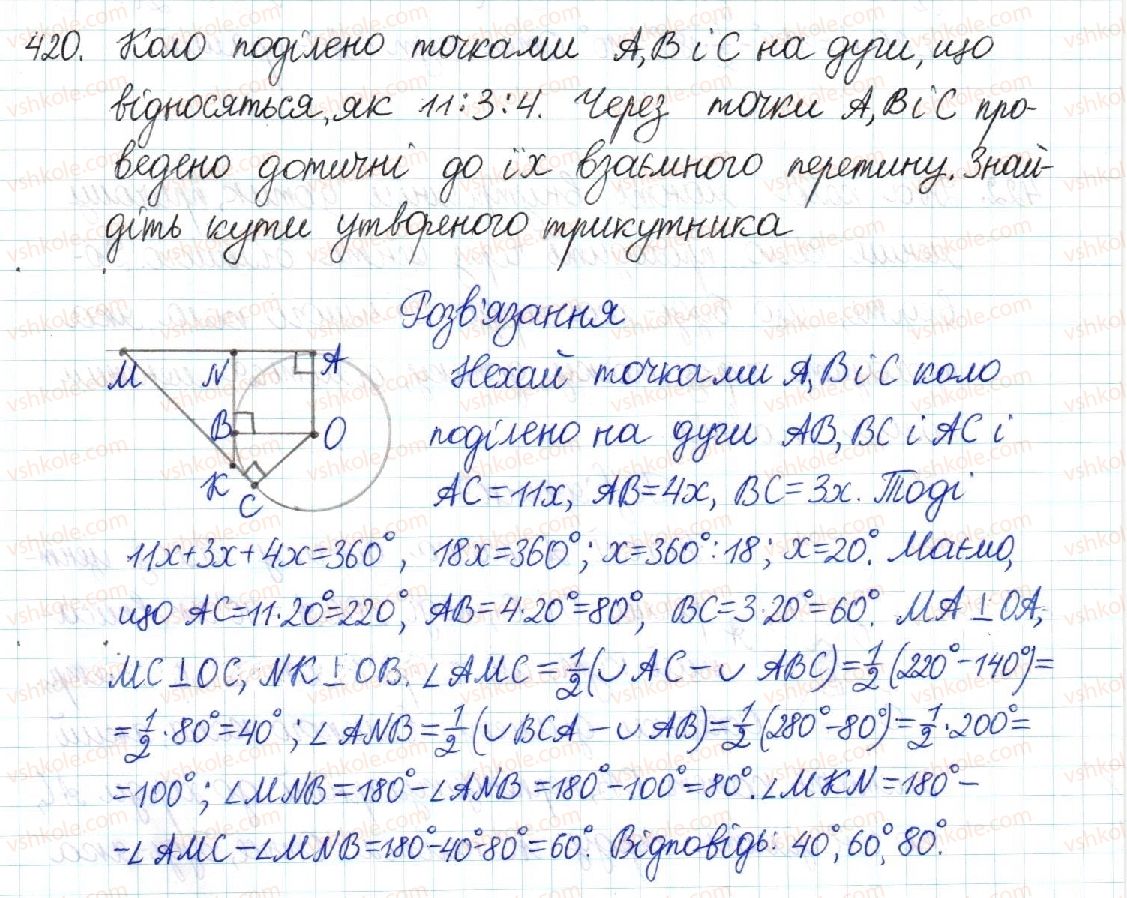 420. Коло поділено точками A, B і C на дуги, що
відносяться, як 11:3:4. Через точки A, B і C про-
ведено дотичні до їх взаємного перетину. Знай-
діть кути утвореного трикутника
Розв'язання
M N A
B O
K C
Нехай точками A, B і C коло
поділено на дуги AB, BC і AC і
AC=11x, AB=4x, BC=3x. Тоді
11x+3x+4x=360°, 18x=360°; x=360°:18; x=20°. Маємо,
що AC=11·20°=220°, AB=4·20°=80°, BC=3·20°=60°. MA⊥OA,
MC⊥OC, NK⊥OB. ∠AMC=1/2(∪AC-∪ABC)=1/2(220°-140°)=
=1/2·80°=40°; ∠ANB=1/2(∪BCA-∪AB)=1/2(280°-80°)=1/2·200°=
=100°; ∠MNB=180°-∠ANB=180°-100°=80°. ∠MKN=180°-
-∠AMC-∠MNB=180°-40°-80°=60°. Відповідь: 40°, 60°, 80°.